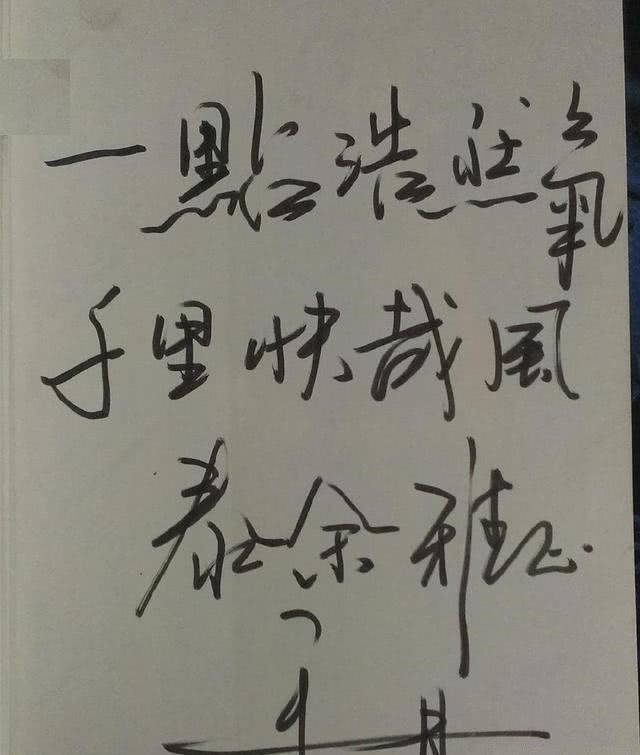 一點浩然氣
千里快哉風
春余雅正